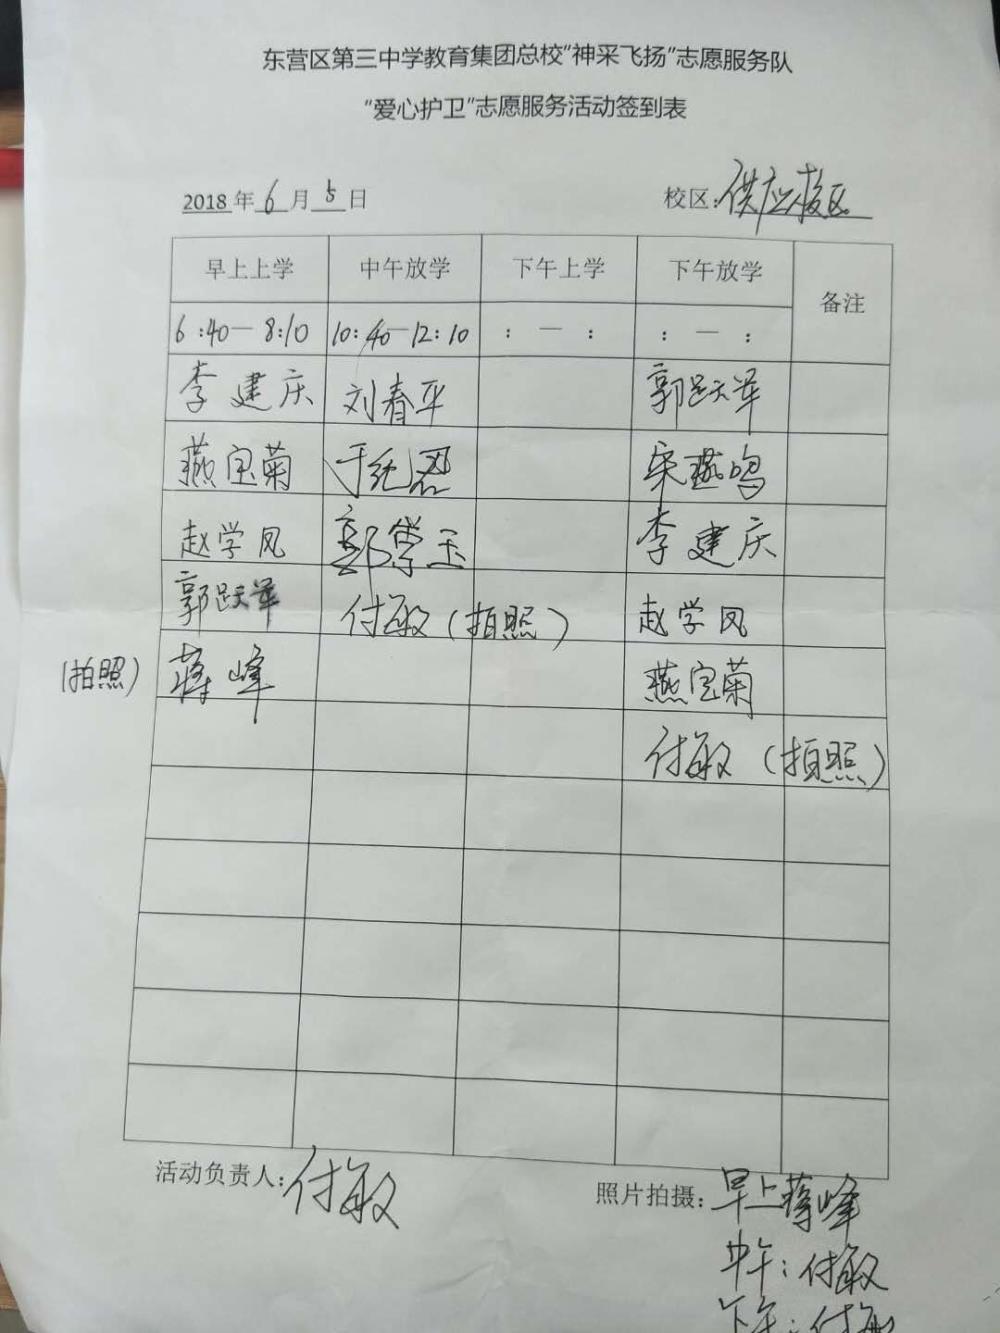 东营区第三中学教育集团总校“神采飞扬”志愿服务队
“爱心护卫”志愿服务活动签到表
2018年6月5日 校区:供应校区
早上上学 中午放学 下午上学 下午放学 备注
6:40—8:10 10:40—12:10 : — : : — :
李建庆 刘春平 郭跃军
燕宝菊 于纪 宋燕鸣
赵学凤 郭学玉 李建庆
郭跃军 付敏(拍照) 赵学凤
(拍照) 蒋峰 燕宝菊
付敏(拍照)
活动负责人:付敏 照片拍摄:早上蒋峰
中午:付敏
下午:付敏